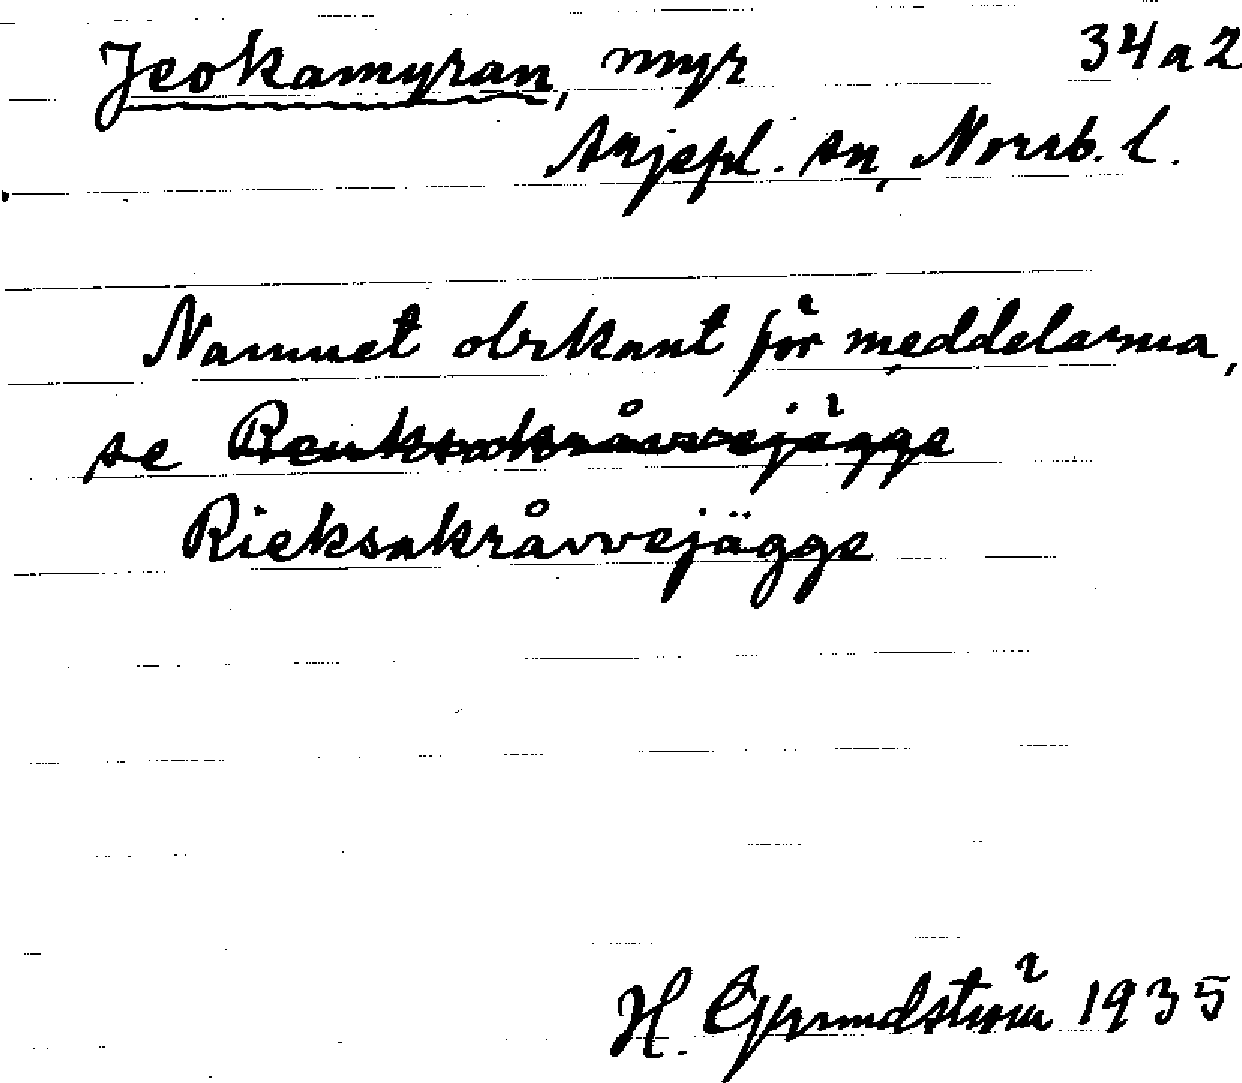 Jeokamyran, myr 34a2
Arjepl. sn, Norrb. l.
Namnet obekant för meddelarna,
se
Rieksakråvvejägge
H. Grundström 1935